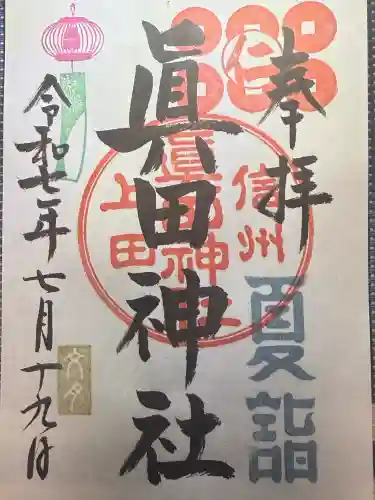 奉拝
夏詣
眞田神社
信州
眞田神社
上田
令和七年七月十九日
文月